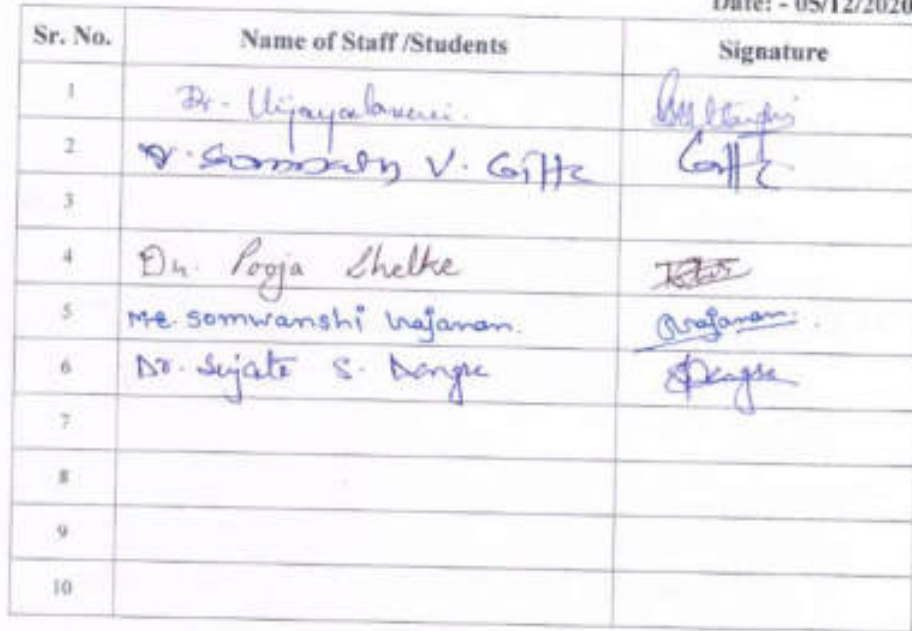 Date: - 05/12/2020
Sr. No. Name of Staff /Students Signature
1 Dr. Vijayalaxmi.
2 V. Gitte Gitte
3
4 Dr. Pooja Shelke
5 Mr. somwanshi Gajanan. Gajanan.
6 Dr. Sujata S. Dangre SDangre
7
8
9
10